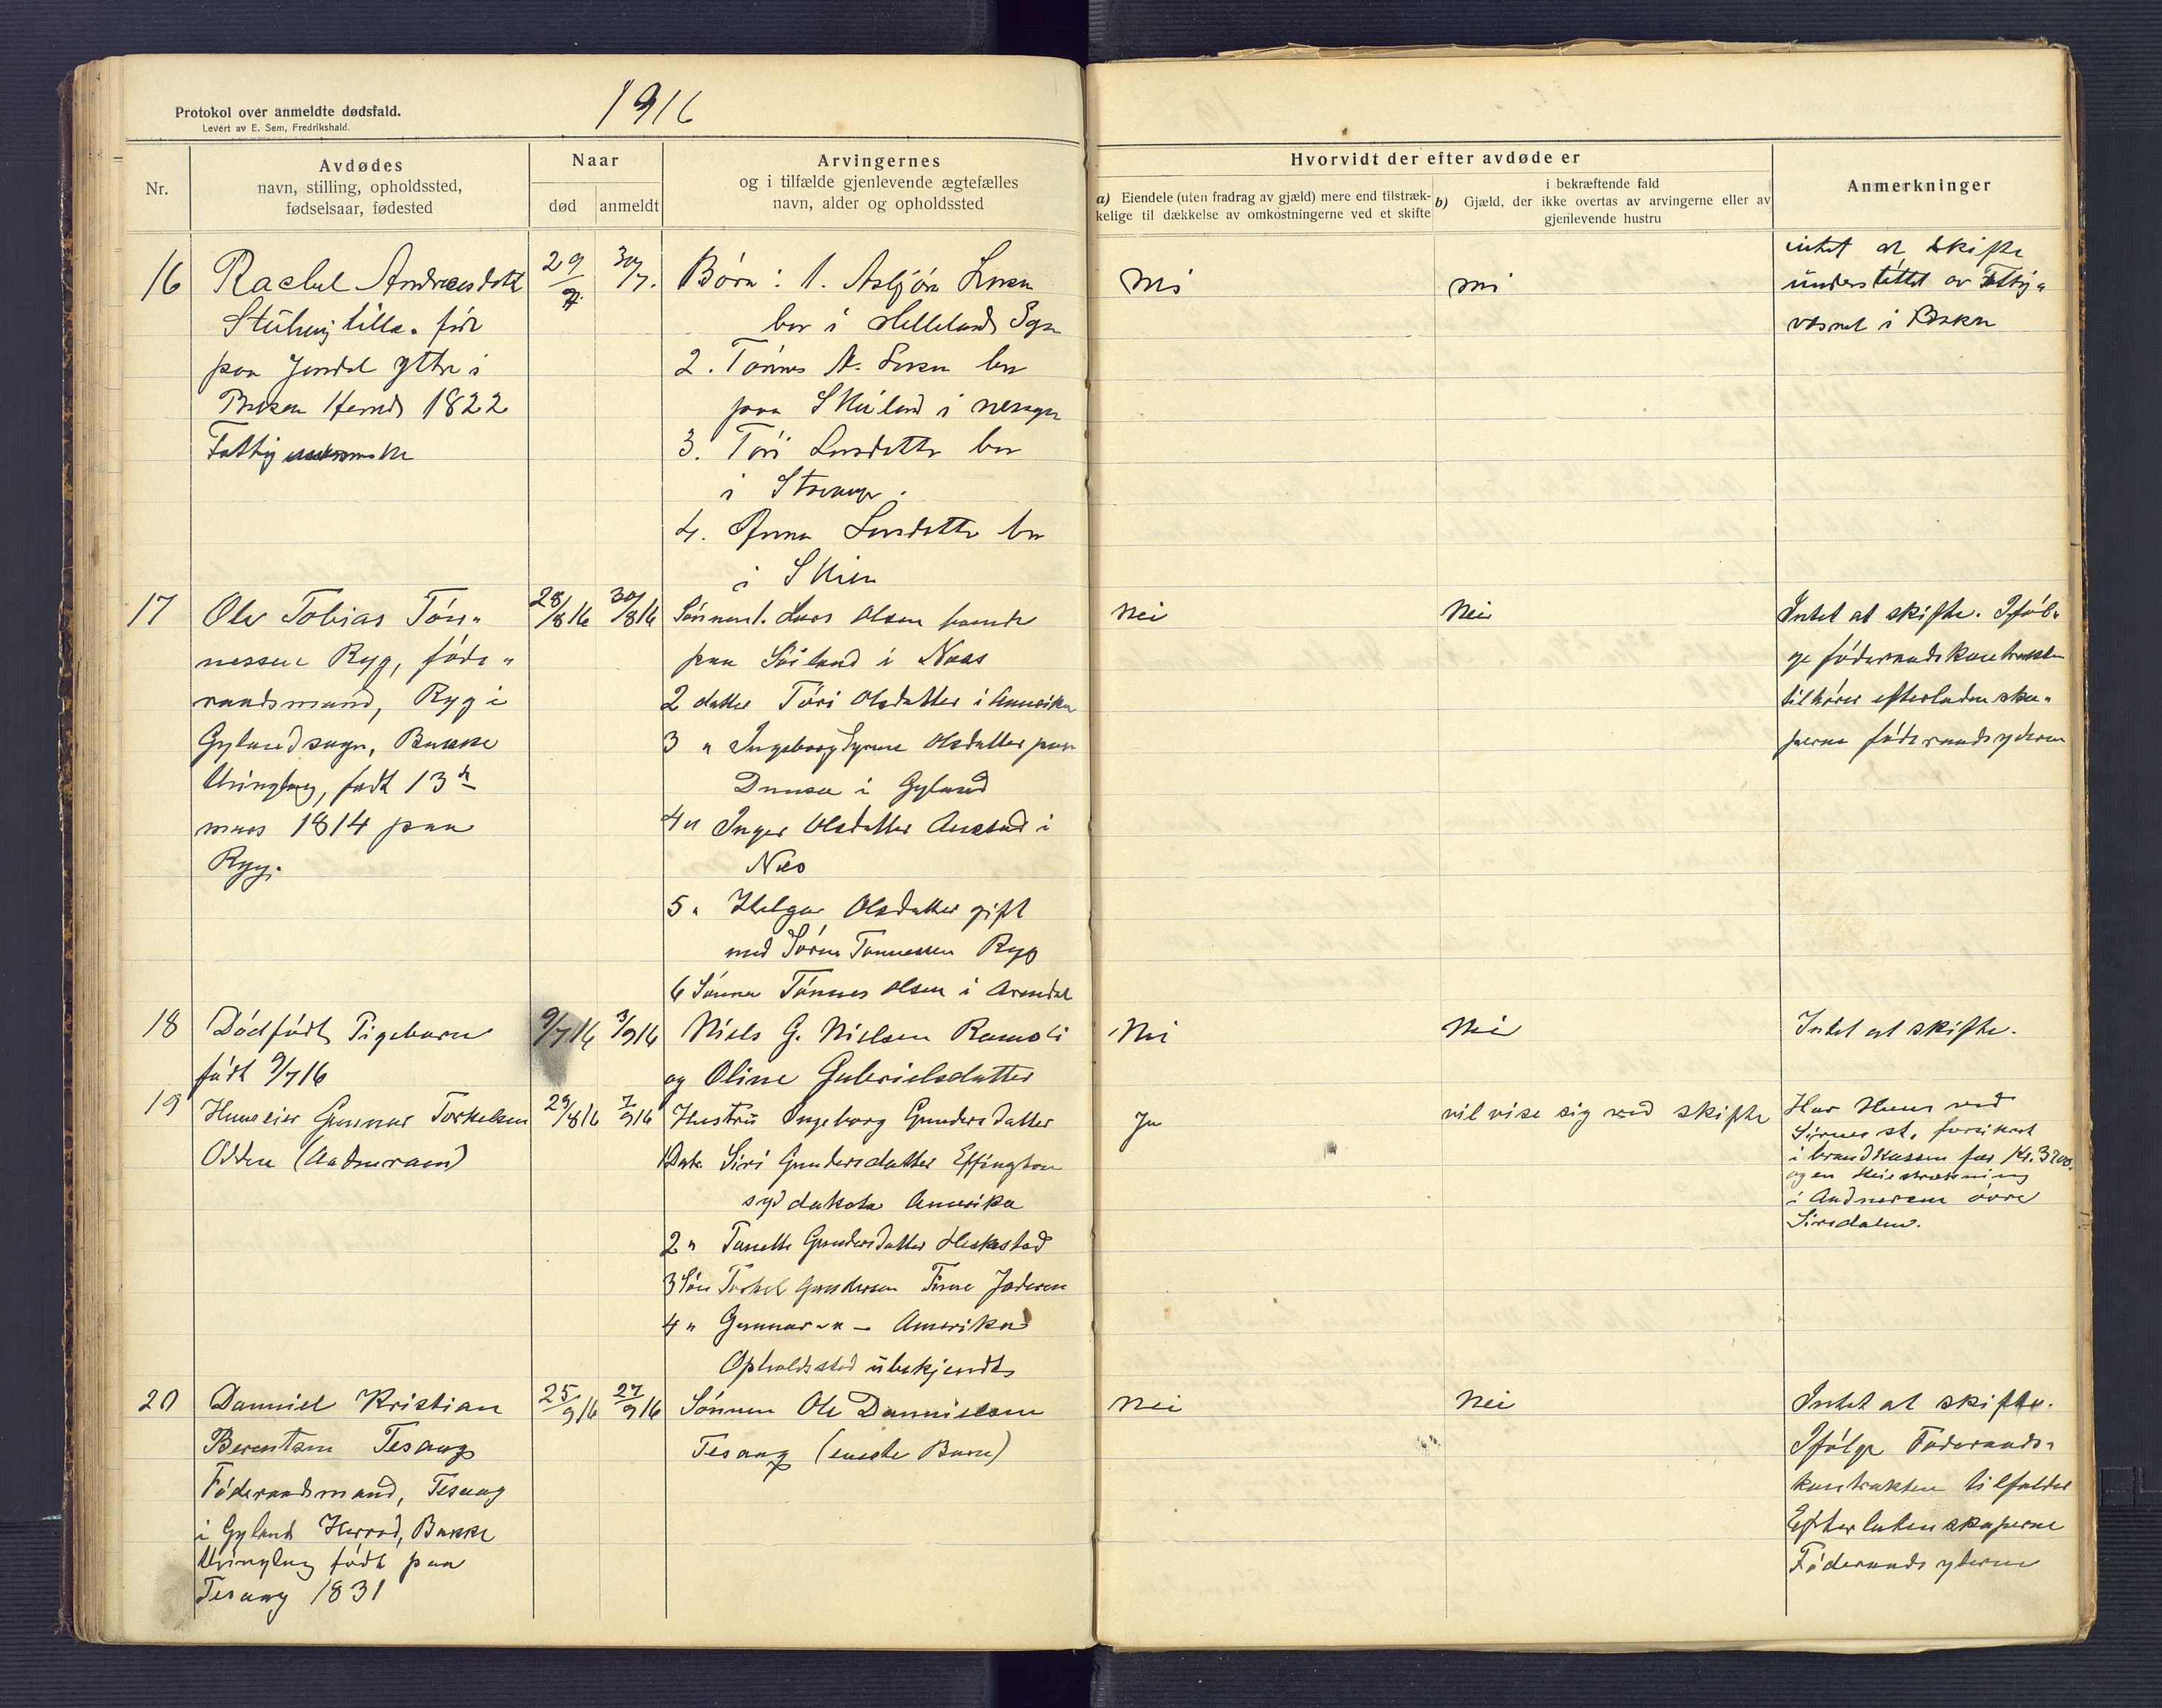 1916
Protokol over anmeldte dødsfald.
Levert av E. Sem, Fredrikshald.
Nr.
Avdødes
navn, stilling, opholdssted,
fødselsaar, fødested
Naar
død
anmeldt
Arvingernes
og i tilfælde gjenlevende ægtefælles
navn, alder og opholdssted
Hvorvidt der efter avdøde er
a) Eiendele (uten fradrag av gjæld) mere end tilstræk-
kelige til dækkelse av omkostningerne ved et skifte
i bekræftende fald
b) Gjæld, der ikke overtas av arvingerne eller av
gjenlevende hustru
Anmerkninger
16
Rachel Andreasdatter
født
paa ytre i
1822
Fattig
29/7
30/7.
Børn: 1. Asbjørn Larsen
bor i Hellelands Sogn
2. Tønnes A. Larsen bor
paa i
3. Tori Larsdatter bor
i
4. Anna Larsdatter bor
i Skien
Nei
Nei
intet at skifte
understøttet av Fattig-
væsnet i Bakke
17
Ole Tobias Tøn-
nessen Ryg, føde-
raadsmand, Ryg i
Gylandsogn, Bakke
thinglag, født 13de
mars 1814 paa
Ryg.
28/8 16
30/8 16
Sønnen 1. Lars Olsen boende
paa i Næs
2 datter Tori Olsdatter i Amerika
3 " Ingeborg Olsdatter paa
i Gyland
4 " Inger Olsdatter i
Næs
5 " Helga Olsdatter gift
med Søren Tønnessen Ryg
6 Sønnen Tønnes Olsen i Arendal
Nei
Nei
Intet at skifte. Iføl-
ge føderaadskontrakten
tilhører efterladenska-
perne føderaadsyderen
18
Dødfødt Pigebarn
født 9/7 16
9/7 16
3/9 16
Niels G. Nielsen Ramsli
og Oline Gabrielsdatter
Nei
Nei
Intet at skifte.
19
Huseier Gunnar Torkelsen
Odden (Aadneram)
29/8 16
7/9 16
Hustru Ingeborg Gundersdatter
1 Dat. Siri Gundersdatter Effington
syd dakota Amerika
2 " Tonette Gundersdatter Heskestad
3 Søn Torkel Gundersen Jæderen
4 " Gunnar - " - Amerika
Opholdssted ubekjendt
Ja
vil vise sig ved skifte
Har Huus ved
Sirnes st. forsikret
i brandkassen for Kr. 3200.
og en Heiestrækning
i Aadneram øvre
Sirdalen.
20
Danniel Kristian
Berentsen Tesaag
Føderaadsmand, Tesaag
i Gyland Herred, Bakke
thinglag født paa
Tesaag 1831
25/9 16
27/9 16
Sønnen Ole Dannielsen
Tesaag (eneste Barn)
Nei
Nei
Intet at skifte.
Ifølge Føderaads-
kontrakten tilfalder
Efterladenskaperne
Føderaadsyderen